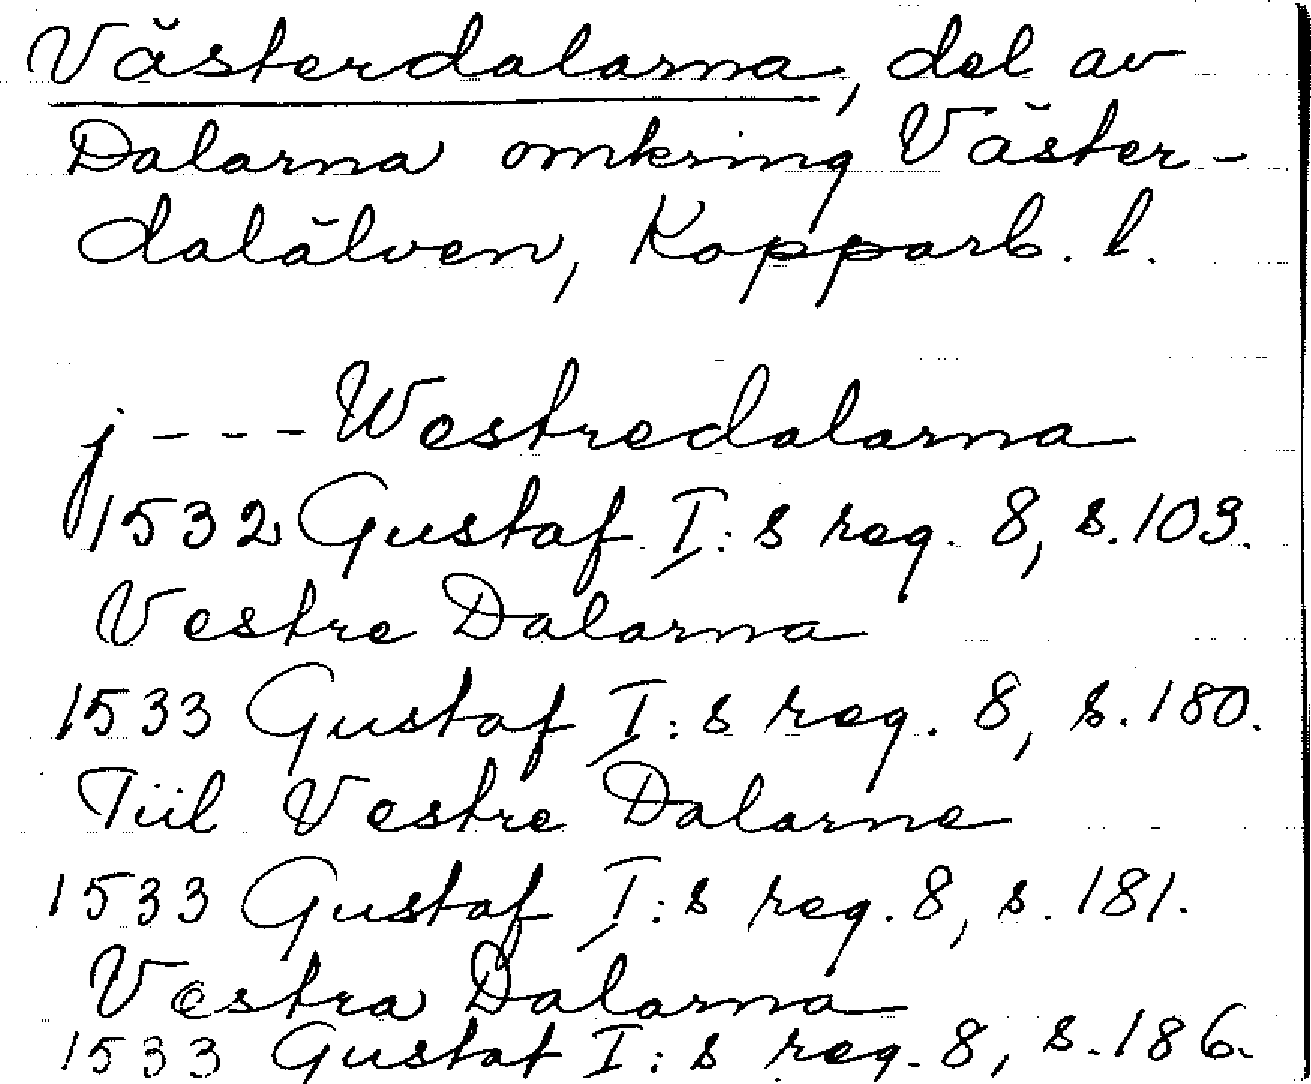 Västerdalarna, del av
Dalarna omkring Väster-
dalälven, Kopparb. l.
j --- Westredalarna
1532 Gustaf I:s reg. 8, s. 109.
Vestre Dalarna
1533 Gustaf I:s reg. 8, s. 180.
Tiil Vestre Dalarne
1533 Gustaf I:s reg. 8, s. 181.
Vestra Dalarna
1533 Gustaf I:s reg. 8, s. 186.